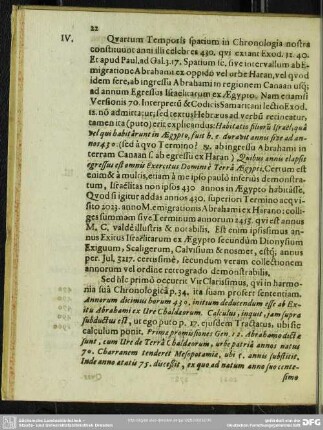 22
IV. Qvartum Temporis spatium in Chronologia nostra
constituunt anni illi celebres 430. qvi extant Exod. 12. 40.
Et apud Paul. ad Gal. 3. 17. Spatium sc. sive intervallum ab E-
migratione Abrahami ex oppido vel urbe Haran, vel qvod
idem fere, ab ingressu Abrahami in regionem Canaan usq;
ad annum Egressus Israëlitarum ex Ægypto. Nam etiamsi
Versionis 70. Interpretũ & Codicis Samaritani lectio Exod.
12. nõ admittatur, sed textus Hebræus ad verbũ retineatur,
tamen ita (puto) erit explicandus: Habitatio filiorũ Israël, quâ
vel qui habitârunt in Ægypto, fuit h. e. duravit annis sive ad an-
nos 430. (sed à qvo Termino? ab ingressu Abrahami in
terram Canaan s. ab egressu ex Haran) Quibus annis elapsis
egressus est omnis Exercitus Domini è Terrâ Ægypti. Certum est
enim & à multis, etiam à me ipso paulò inferiùs demonstra-
tum, Israëlitas non ipsos 430 annos in Ægypto habitâsse,
Quod si igitur addas annos 430. superiori Termino acqvi-
sito 2023. anno M. emigrationis Abrahami ex Harano: colli-
ges summam sive Terminum annorum 2453. qvi est annus
M. C. valdè illustris & notabilis. Est enim ipsissimus an-
nus Exitus Israëlitarum ex Ægypto secundùm Dionysium
Exiguum, Scaligerum, Calvisium & nosmet, estq; annus
per. Jul. 3217. certissimè, secundum veram collectionem
annorum vel ordine retrogrado demonstrabilis.
Sed hîc primò occurrit Vir Clarissimus, qvi in harmo-
nia suâ Chronologicâ p. 34. ita suam profert sententiam.
Annorum dicimus horum 430, initium deducendum esse ab Ex-
itu Abrahami ex Ure Chaldæorum. Calculus, inquit, jam supra
subductus est, ut ego puto p. 17. ejusdem Tractatus, ubi sic
calculum ponit. Primæ promissiones Gen. 12. Abrahamo dictæ
sunt, cum Ure de Terrâ Chaldæorum, urbe patriâ annos natus
70. Charranem tenderet Mesopotamiæ, ubi 5. annis substitit,
Inde anno ætatis 75. discessit, ex que ad natum anno suo cente-
simo